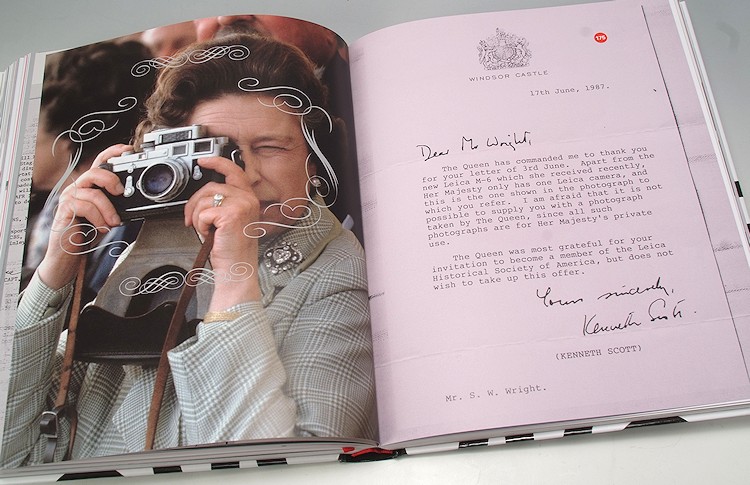 175
WINDSOR CASTLE
17th June, 1987.
Dear Mr Wright,
The Queen has commanded me to thank you
for your letter of 3rd June. Apart from the
new Leica M-6 which she received recently,
Her Majesty only has one Leica camera, and
this is the one shown in the photograph to
which you refer. I am afraid that it is not
possible to supply you with a photograph
taken by The Queen, since all such
photographs are for Her Majesty's private
use.
The Queen was most grateful for your
invitation to become a member of the Leica
Historical Society of America, but does not
wish to take up this offer.
Yours sincerely,
Kenneth Scott.
(KENNETH SCOTT)
Mr. S. W. Wright.